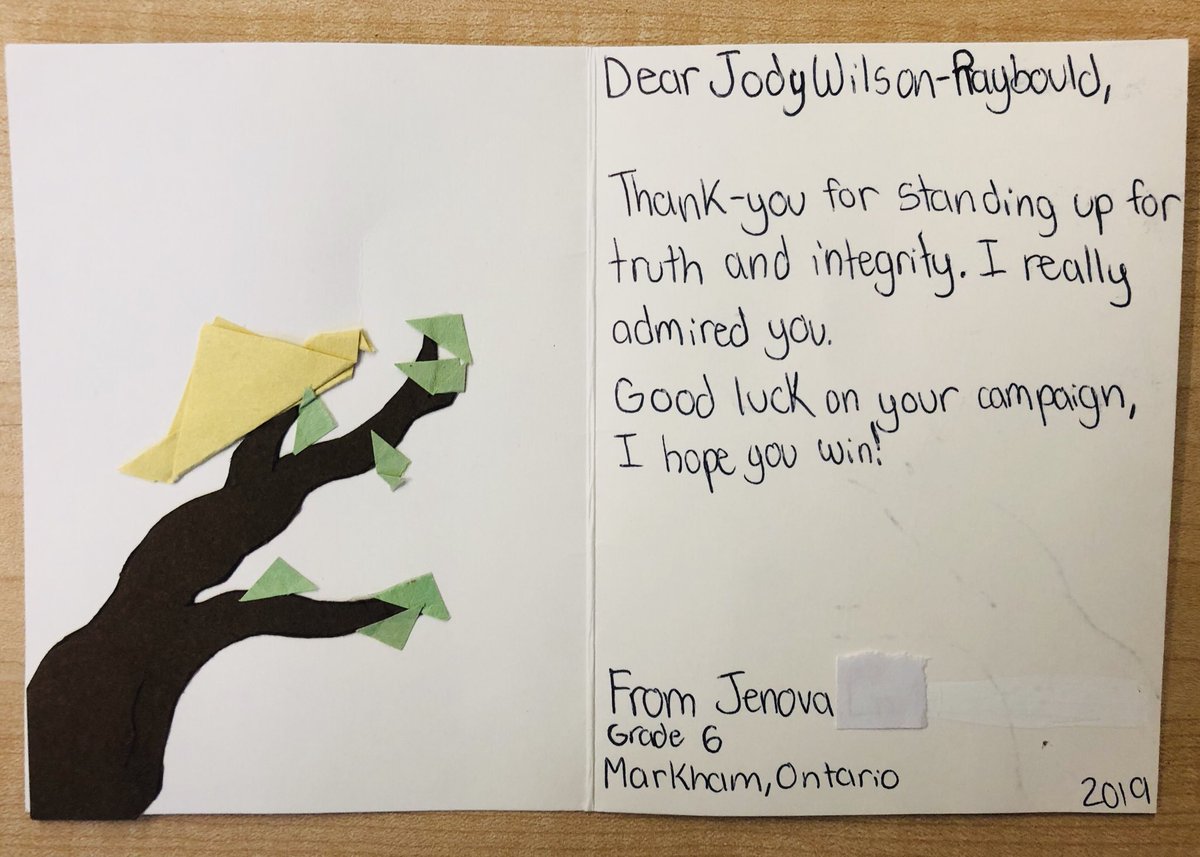 Dear Jody Wilson-Raybould,
Thank-you for standing up for
truth and integrity. I really
admired you.
Good luck on your campaign,
I hope you win!
From Jenova
Grade 6
Markham, Ontario
2019